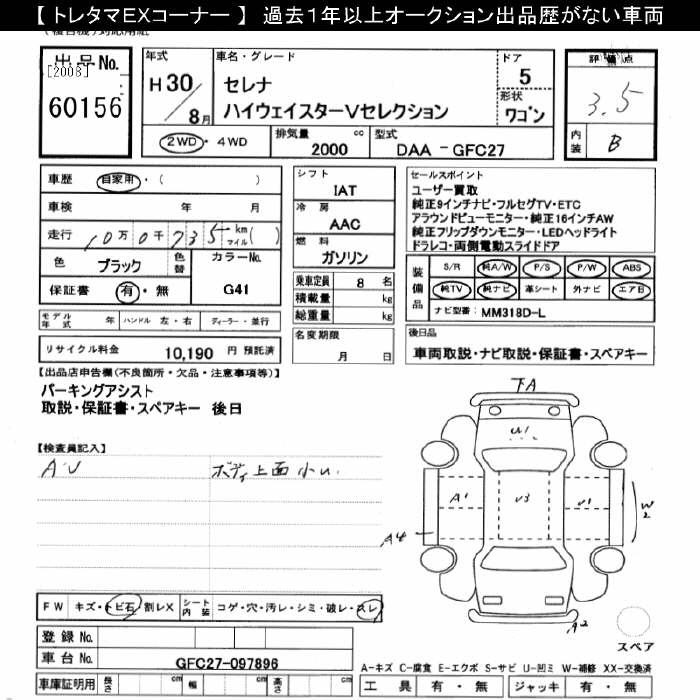 【 トレタマEXコーナー 】 過去１年以上オークション出品歴がない車両
出品No.
[2008]
60156
年式
H30/8月
車名・グレード
セレナ
ハイウェイスターVセレクション
ドア
5
形状
ワゴン
2WD ・ 4WD
排気量 cc
2000
型式
DAA － GFC27
評価点
3.5
内装
B
車歴 自家用 ・ ( )
車検 年 月
走行 10万0千735 km マイル( )
色 ブラック 色替 カラーNo.
保証書 有 ・ 無 G41
モデル年式 年 ハンドル 左・右 ディーラー・並行
リサイクル料金 10,190 円 預託済
シフト
IAT
冷房
AAC
燃料
ガソリン
乗車定員 8 名
積載量 kg
総重量 kg
名変期限
月 日
セールスポイント
ユーザー買取
純正9インチナビ・フルセグTV・ETC
アラウンドビューモニター・純正16インチAW
純正フリップダウンモニター・LEDヘッドライト
ドラレコ・両側電動スライドドア
装備品
S/R 純A/W P/S P/W ABS
純TV 純ナビ 革シート 外ナビ エアB
ナビ型番： MM318D-L
後日品
車両取説・ナビ取説・保証書・スペアキー
【出品店申告欄(不良箇所・欠品・注意事項等)】
パーキングアシスト
取説・保証書・スペアキー 後日
【検査員記入】
A・U ボディ上面小U.
下A
U1
A1
U3
U1
W2
A4
A2
スペア
FW キズ・トビ石 割レX シート内装 コゲ・穴・汚レ・シミ・破レ・スレ
登録 No.
車台 No. GFC27-097896
車庫証明用 長さ cm 幅 cm 高さ cm
A－キズ C－腐食 E－エクボ S－サビ U－凹ミ W－補修 XX－交換済
工具 有 ・ 無 ジャッキ 有 ・ 無